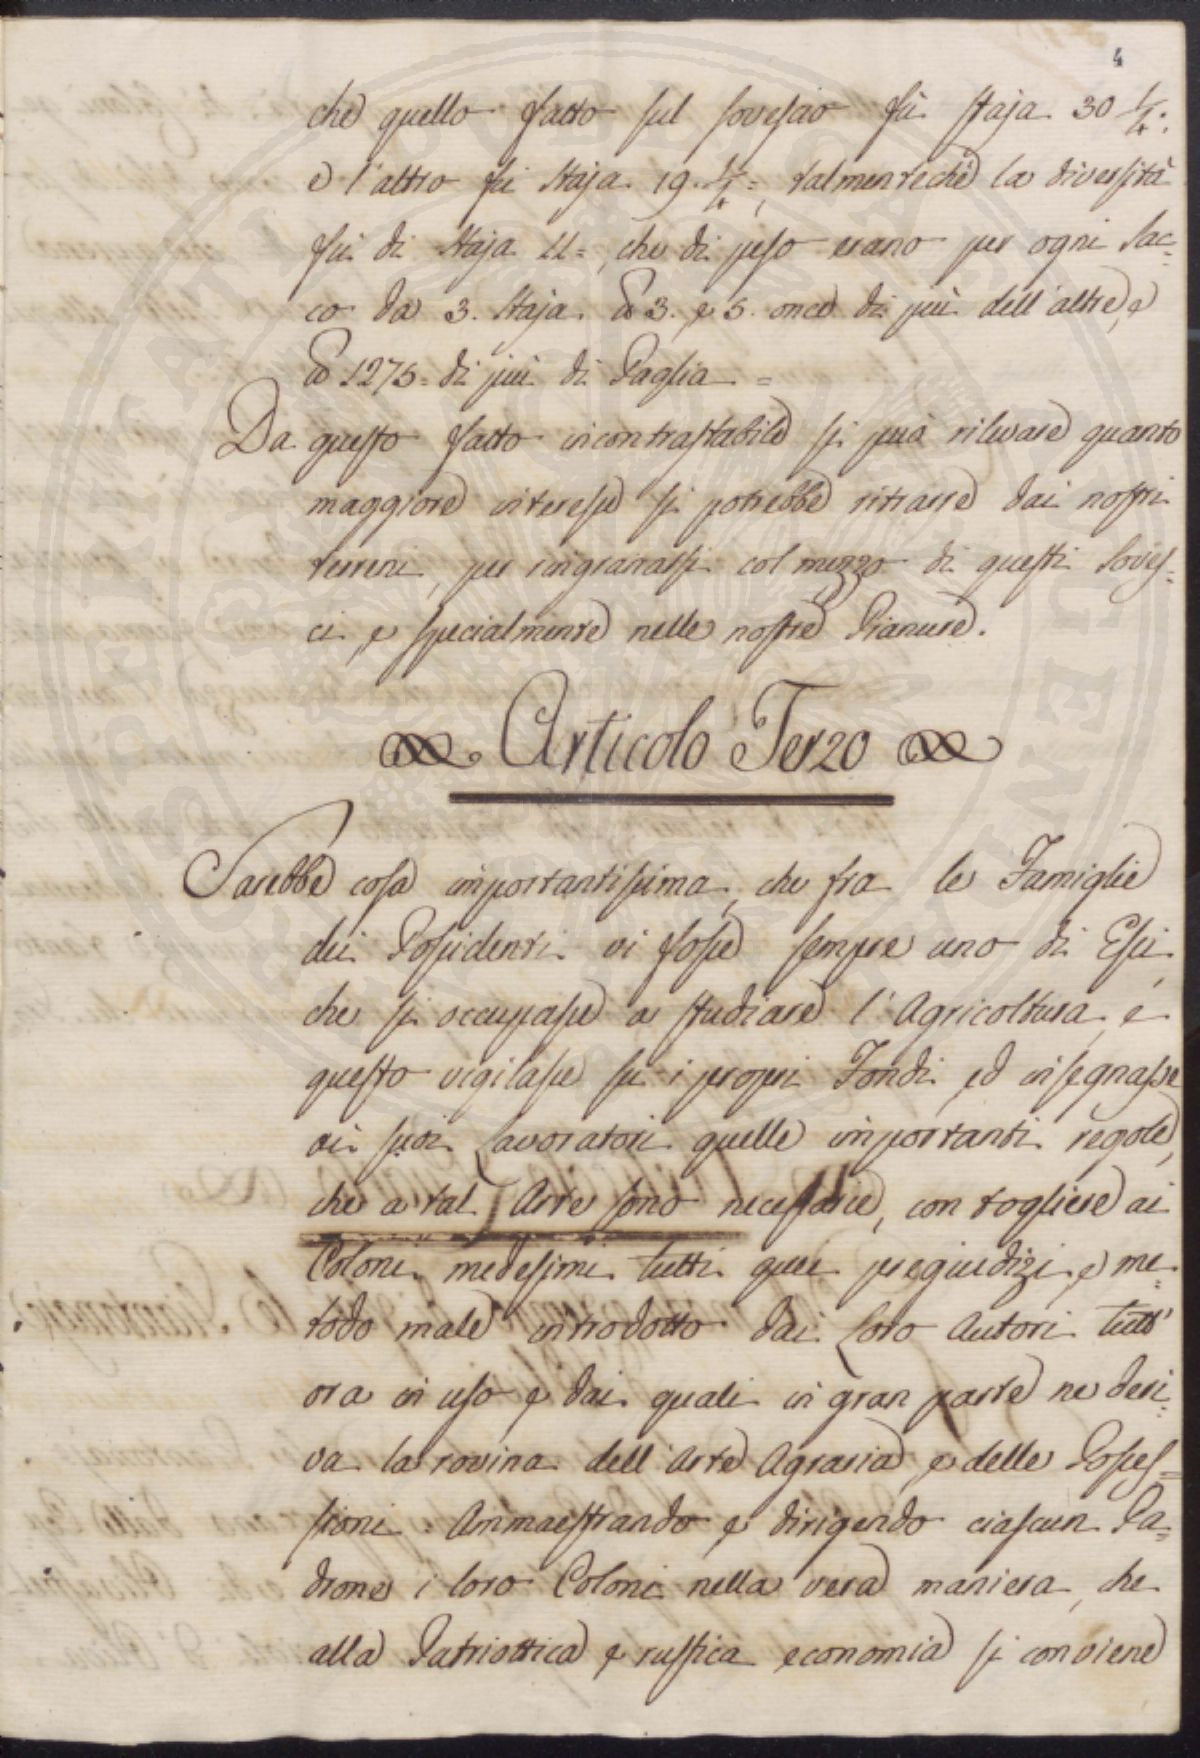 4
che quello fatto sul sovescio fù staja 30 1/4:
e l'altro fù staja 19. 1/4=, talmenteche la diversità
fù di staja 11=, che di peso erano per ogni sac=
co da 3. staja. 3. e 5. once di più dell'altre, e
1275= di più di Paglia =
Da questo fatto incontrastabile si può rilevare quanto
maggiore interesse si potrebbe ritrarre dai nostri
terreni, per ringranarsi col mezzo di questi soves=
ci, e specialmente nelle nostre Pianure.
Articolo Terzo
Sarebbe cosa importantissima, che fra le Famiglie
dei Possidenti vi fosse sempre uno di Essi,
che si occupasse a studiare l'Agricoltura, e
questo vigilasse su i propri Fondi ed insegnasse
ai suoi Lavoratori quelle importanti regole,
che a tal Arte sono necessarie, con togliere ai
Coloni medesimi tutti quei pregiudizi, e me=
todo male introdotto dai Loro Autori tutt'
ora in uso e dai quali in gran parte ne deri=
va la rovina dell'Arte Agraria, e delle Posses=
sioni. Ammaestrando e dirigendo ciascun Pa=
drone i loro Coloni nella vera maniera, che
alla Patriottica e rustica economia si conviene